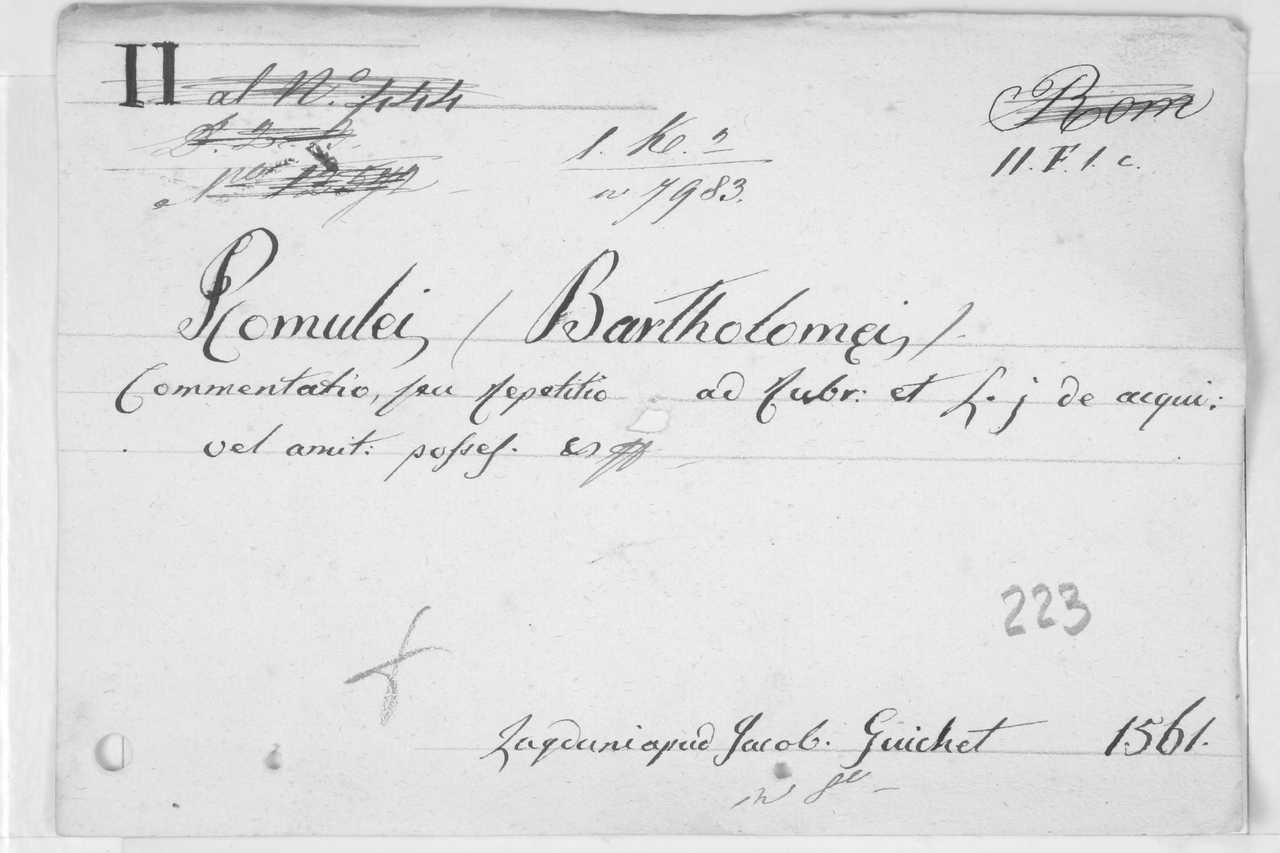 II al N.º 744 Rom
1. K. 2 II. F. 1. c.
7983.
Romulei, (Bartholomęi,).
Commentatio, seu Repetitio ad Rubr: et L. j de acqui:
vel amit: posses. &
223
Lugduni apud Jacob. Guichet 1561.
in 8º